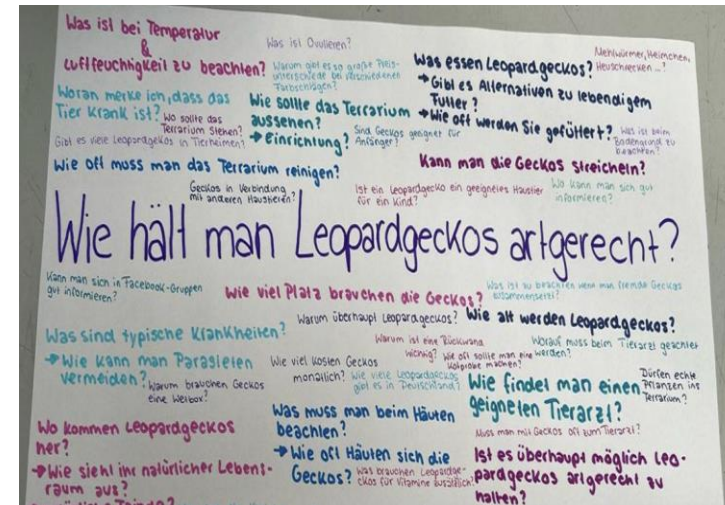 Was ist bei Temperatur
&
Luftfeuchtigkeit zu beachten?
Was ist Ovulieren?
Warum gibt es so große Preis-
unterschiede bei verschiedenen
Farbschlägen?
Was essen Leopardgeckos?
Mehlwürmer, Heimchen,
Heuschrecken ...?
→ Gibt es Alternativen zu lebendigem
Futter?
→ Wie oft werden Sie gefüttert?
Was ist beim
Bodengrund zu
beachten?
Woran merke ich, dass das
Tier krank ist?
Wo sollte das
Terrarium stehen?
Gibt es viele Leopardgeckos in Tierheimen?
Wie sollte das Terrarium
aussehen?
→ Einrichtung?
Sind Geckos geeignet für
Anfänger?
Wie oft muss man das Terrarium reinigen?
Kann man die Geckos streicheln?
Geckos in Verbindung
mit anderen Haustieren?
Ist ein Leopardgecko ein geeignetes Haustier
für ein Kind?
Wo kann man sich gut
informieren?
Wie hält man Leopardgeckos artgerecht?
Kann man sich in Facebook-Gruppen
gut informieren?
Wie viel Platz brauchen die Geckos?
Was ist zu beachten wenn man fremde Geckos
zusammensetzt?
Warum überhaupt Leopardgeckos?
Wie alt werden Leopardgeckos?
Was sind typische Krankheiten?
→ Wie kann man Parasieten
vermeiden?
Warum brauchen Geckos
eine Wetbox?
Wie viel kosten Geckos
monatlich?
Warum ist eine Rückwand
wichtig?
Wie oft sollte man eine
Kotprobe machen?
Worauf muss beim Tierarzt geachtet
werden?
Wie viele Leopardgeckos
gibt es in Deutschland?
Wie findet man einen
geigneten Tierarzt?
Dürfen echte
Pflanzen ins
Terrarium?
Muss man mit Geckos oft zum Tierarzt?
Wo kommen Leopardgeckos
her?
→ Wie sieht ihr natürlicher Lebens-
raum aus?
Was muss man beim Häuten
beachten?
→ Wie oft Häuten sich die
Geckos?
Was brauchen Leopardge-
ckos für Vitamine zusätzlich?
Ist es überhaupt möglich Leo-
pardgeckos artgerecht zu
halten?